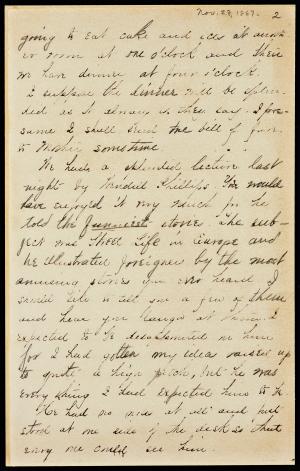 Nov. 28, 1867. 2
going to eat cake and ices at
room at one o'clock and then
we have dinner at four o'clock.
I suppose the dinner will be splen-
did as it always is they say. I pre-
sume I shall send the bill of fare
to Mother sometime.
We had a splendid lecture last
night by Wendell Phillips. You would
have enjoyed it very much for he
told the funniest stories. The sub-
ject was Street Life in Europe and
he illustrated foreigner by the most
amusing stories you ever heard. I
should like to tell you a few of them
and hear you laugh at them. I
expected to be disappointed in him
for I had gotten my ideas raised up
to quite a high pitch, but he was
everything I had expected him to be.
He had no notes at all and
stood at one side of the desk so that
every one could see him.